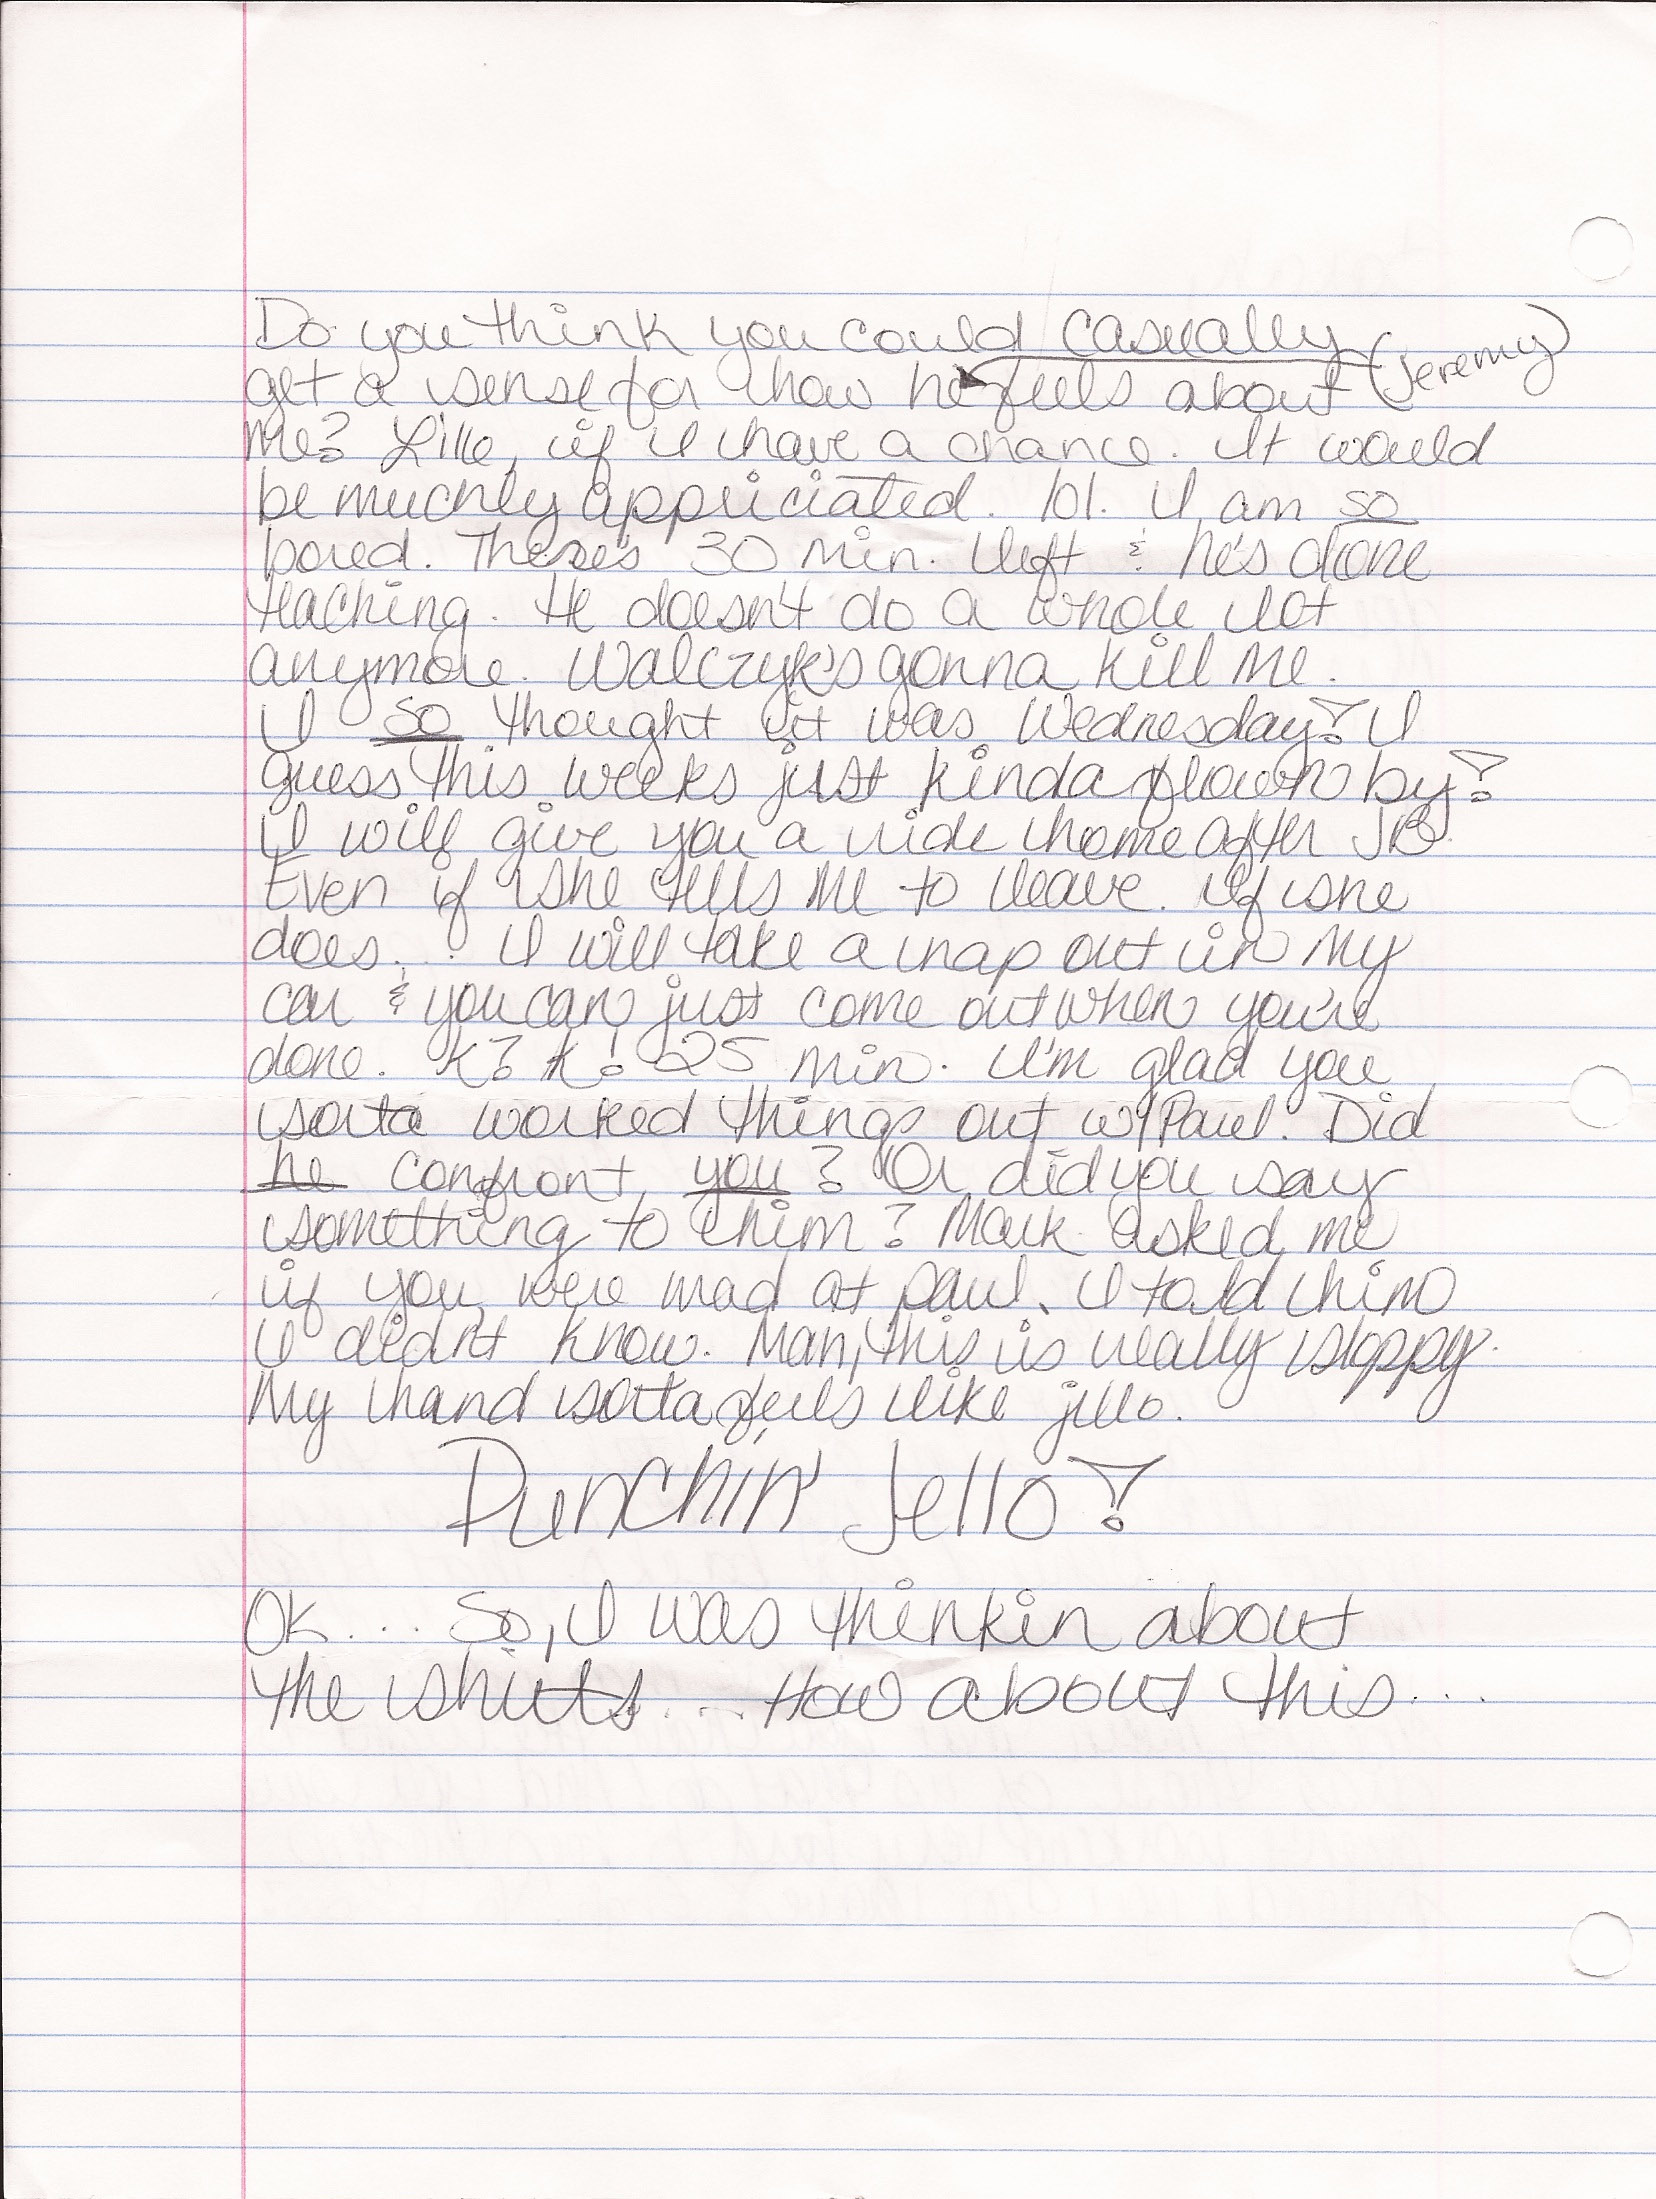 Do you think you could casually
(Jeremy)
get a sense for how he feels about
me? Like, if I have a chance. It would
be muchly appriciated. lol. I am so
bored. There's 30 min. left & he's done
teaching. He doesn't do a whole lot
anymore. Walczyk's gonna kill me.
I so thought it was Wednesday! I
guess this weeks just kinda flown by!
I will give you a ride home after JB.
Even if she tells me to leave. If she
does... I will take a nap out in my
car & you can just come out when you're
done. K? K! 25 min. I'm glad you
sorta worked things out w/Paul. Did
he confront you? Or did you say
something to him? Mark asked me
if you were mad at Paul. I told him
I didn't know. Man, this is really sloppy.
My hand sorta feels like jello.
Punchin' Jello!
OK... So, I was thinkin about
the shirts... How about this...